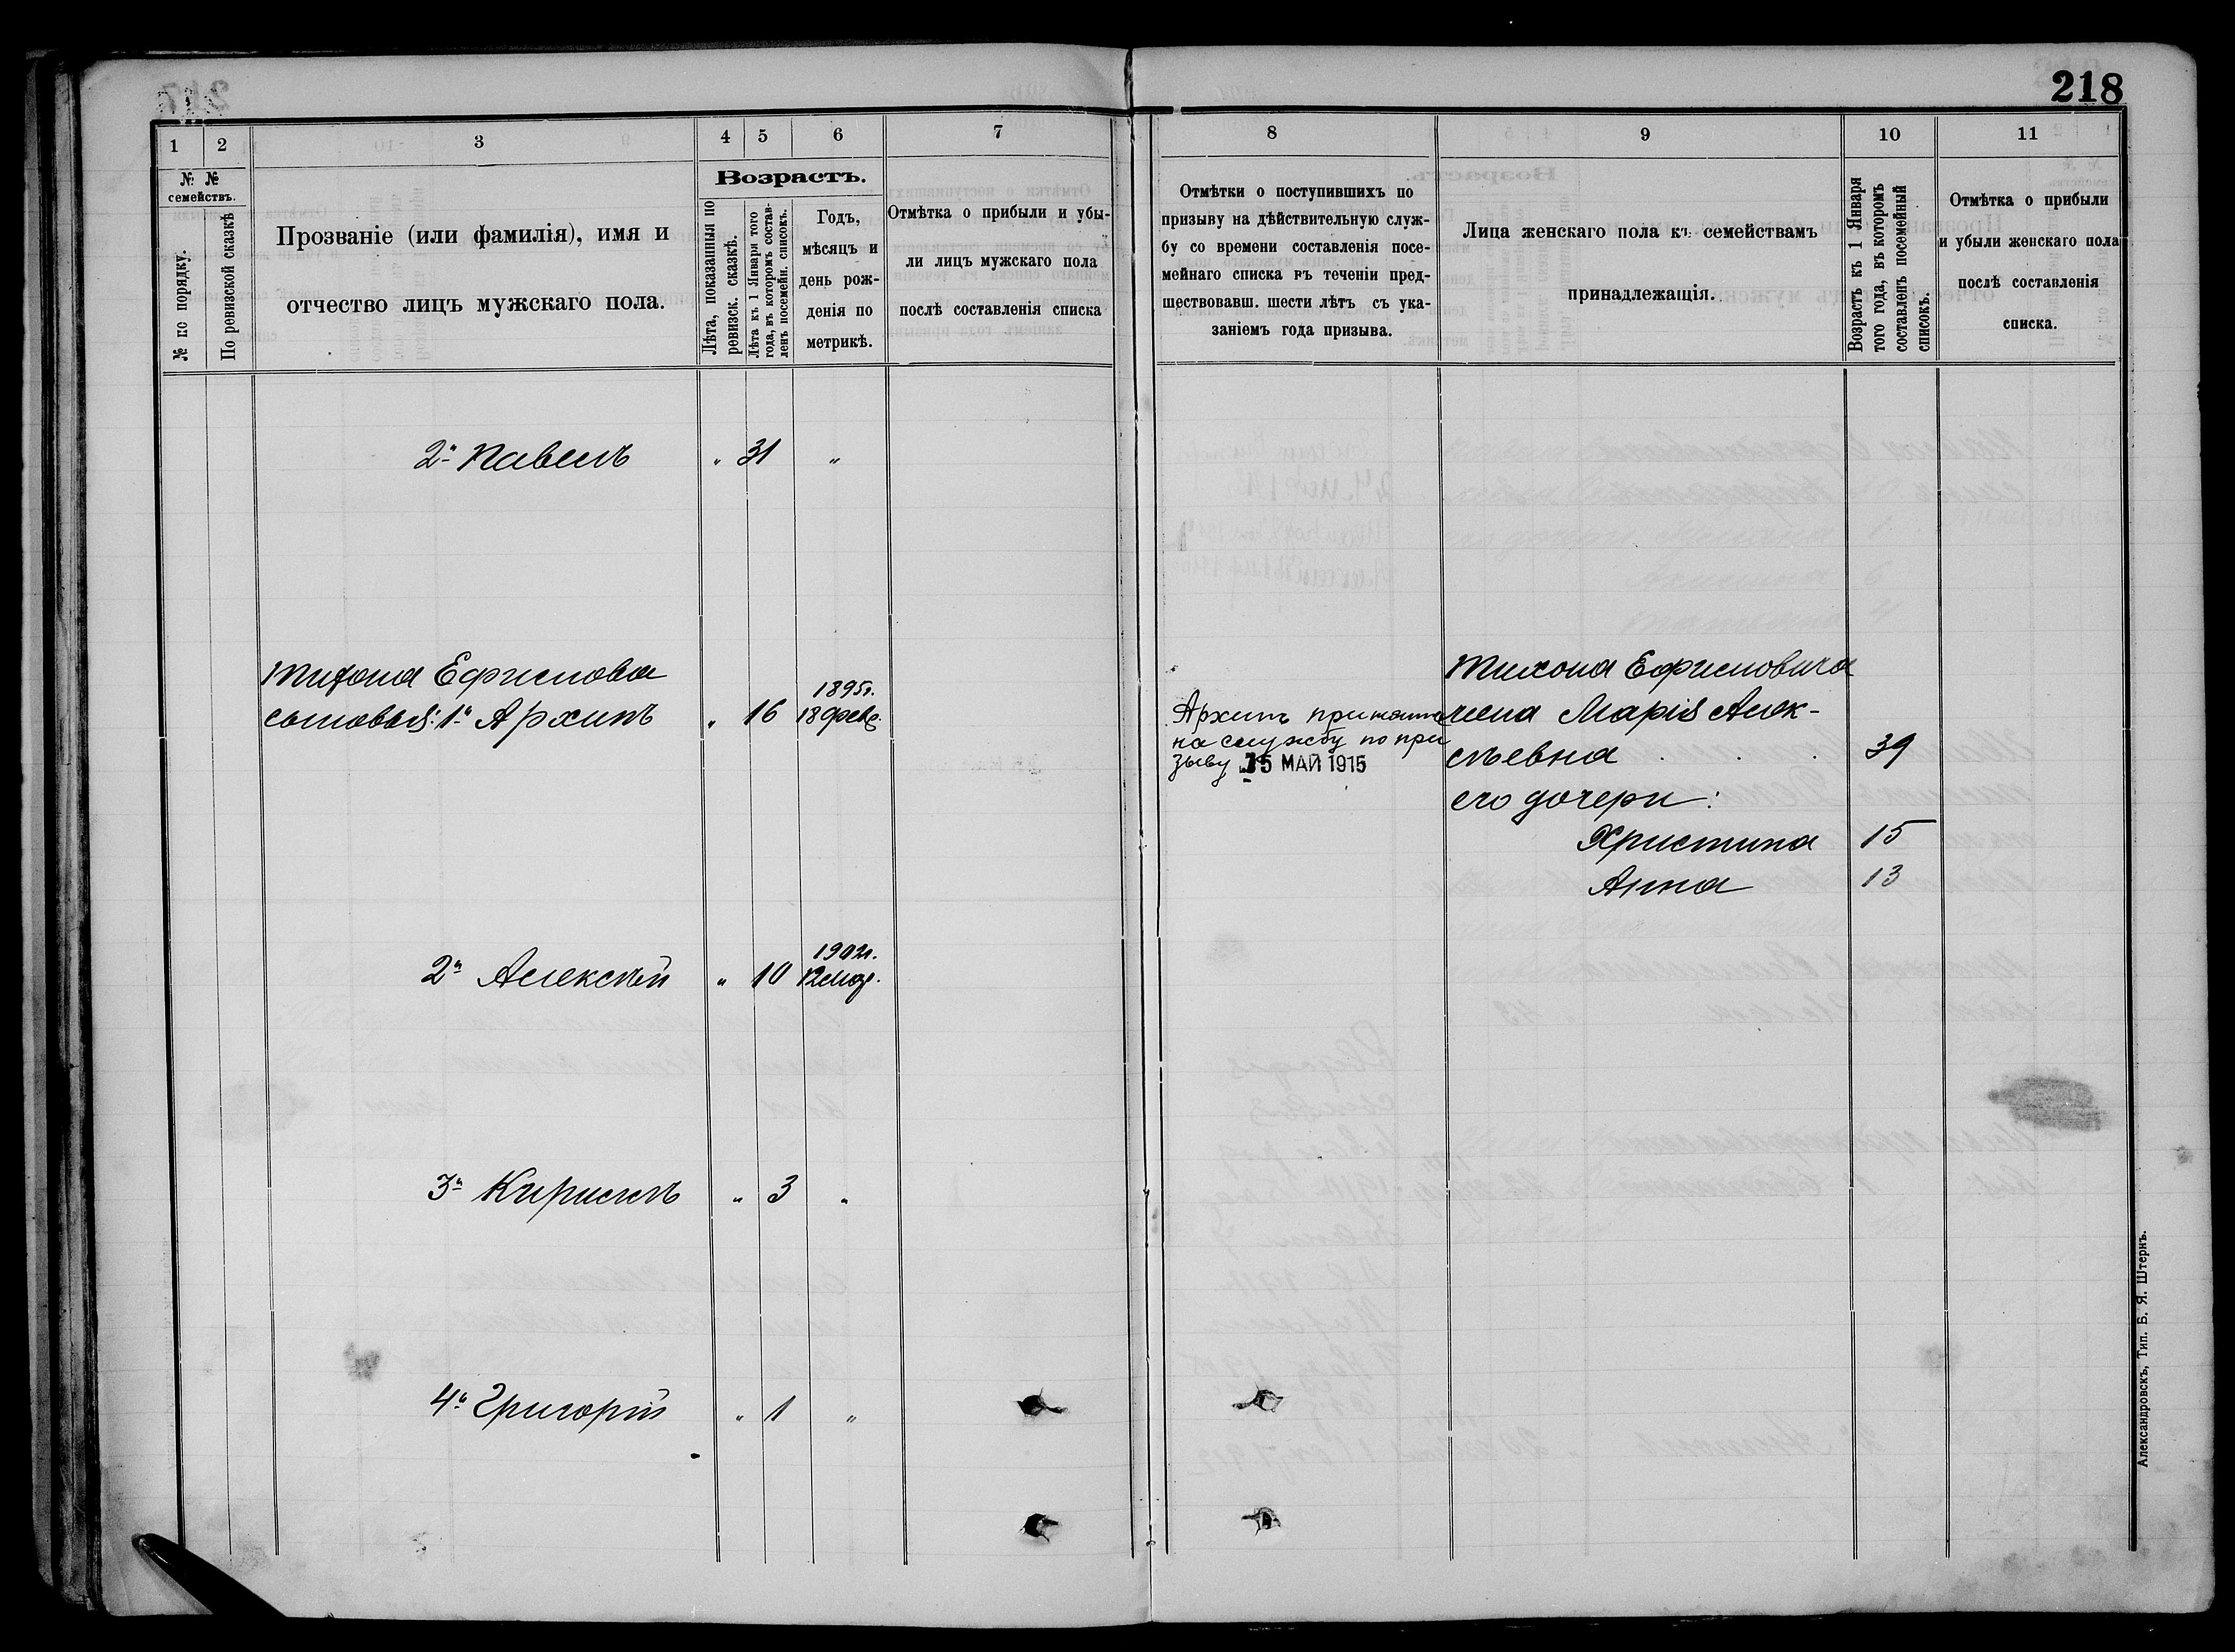 218
1
2
3
4
5
6
7
№ №
семействъ.
№ по порядку.
По ревизской сказкѣ
Прозваніе (или фамилія), имя и
отчество лицъ мужскаго пола.
Возрастъ.
Лѣта, показанныя по
ревизск. сказкѣ.
Лѣта къ 1 Января того
года, въ которомъ состав-
ленъ посемейн. списокъ.
Годъ,
мѣсяцъ и
день рож-
денія по
метрикѣ.
Отмѣтка о прибыли и убы-
ли лицъ мужскаго пола
послѣ составленія списка
2й Павелъ „ 31 „
Тихона Ефимова
сыновья: 1й Архипъ „ 16 1895г.
18 февр.
2й Алексѣй „ 10 1902г.
12 мар.
3й Кириллъ „ 3 „
4й Григорій „ 1 „
8
9
10
11
Отмѣтки о поступившихъ по
призыву на дѣйствительную служ-
бу со времени составленія посе-
мейнаго списка въ теченіи пред-
шествовавш. шести лѣтъ съ ука-
заніемъ года призыва.
Лица женскаго пола къ семействамъ
принадлежащія.
Возрастъ къ 1 Января
того года, въ которомъ
составленъ посемейный
списокъ.
Отмѣтка о прибыли
и убыли женскаго пола
послѣ составленія
списка.
Архипъ принятъ
на службу по при
зыву 15 МАЙ 1915
Тихона Ефимовича
жена Марія Алек-
сѣевна . . . 39
его дочери:
Христина 15
Анна 13
Александровскъ, Тип. Б. Я. Штернъ.